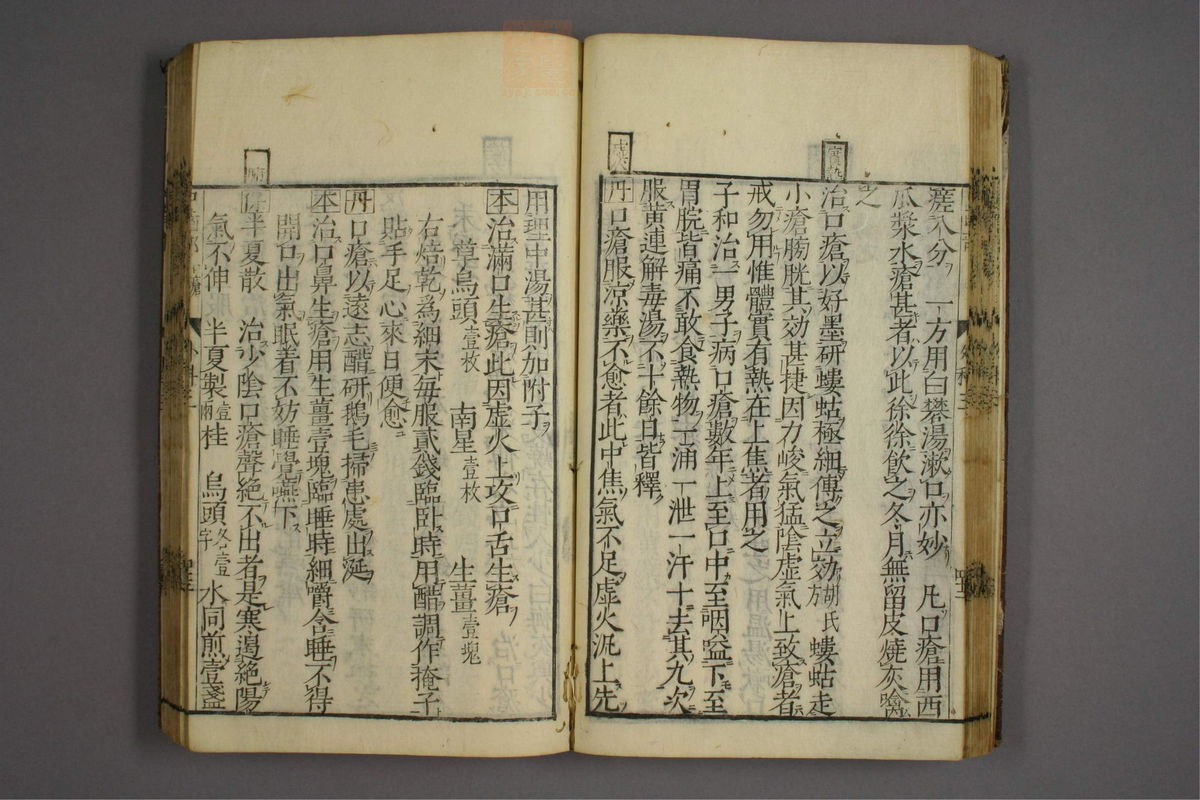 瘥不分 一方用白礬湯漱口亦妙 凡口瘡用西
瓜漿水瘡甚者以此徐徐飲之冬月無留皮燒灰噙
之
實熱
治口瘡以好墨研螻蛄極細傅之立効胡氏方 螻蛄走
小瘡膀胱其効甚捷因力峻氣猛陰虛氣上致瘡者
戒勿用惟體實有熱在上焦者用之
子和治一男子病口瘡數年上至口中至咽嗌下至
胃脘皆痛不敢食熱物一涌一泄一汗十去其九次
服黃連解毒湯不十餘日皆釋
丹口瘡服涼藥不愈者此中焦氣不足虛火泛上先
用理中湯甚則加附子
本治滿口生瘡此因虛火上攻口舌生瘡
草烏頭壹枚 南星壹枚 生薑壹塊
右焙乾為細末每服貳錢臨臥時用醋調作掩子
貼手足心來日便愈
丹口瘡以遠志醋研鵝毛掃患處出涎
本治口鼻生瘡用生薑壹塊臨睡時細嚼含睡不得
開口出氣眠着不妨睡覺嚥下
半夏散 治少陰口瘡聲絕不出者是寒遏絕陽
氣不伸 半夏製壹兩 桂 烏頭各壹字 水同煎壹盞